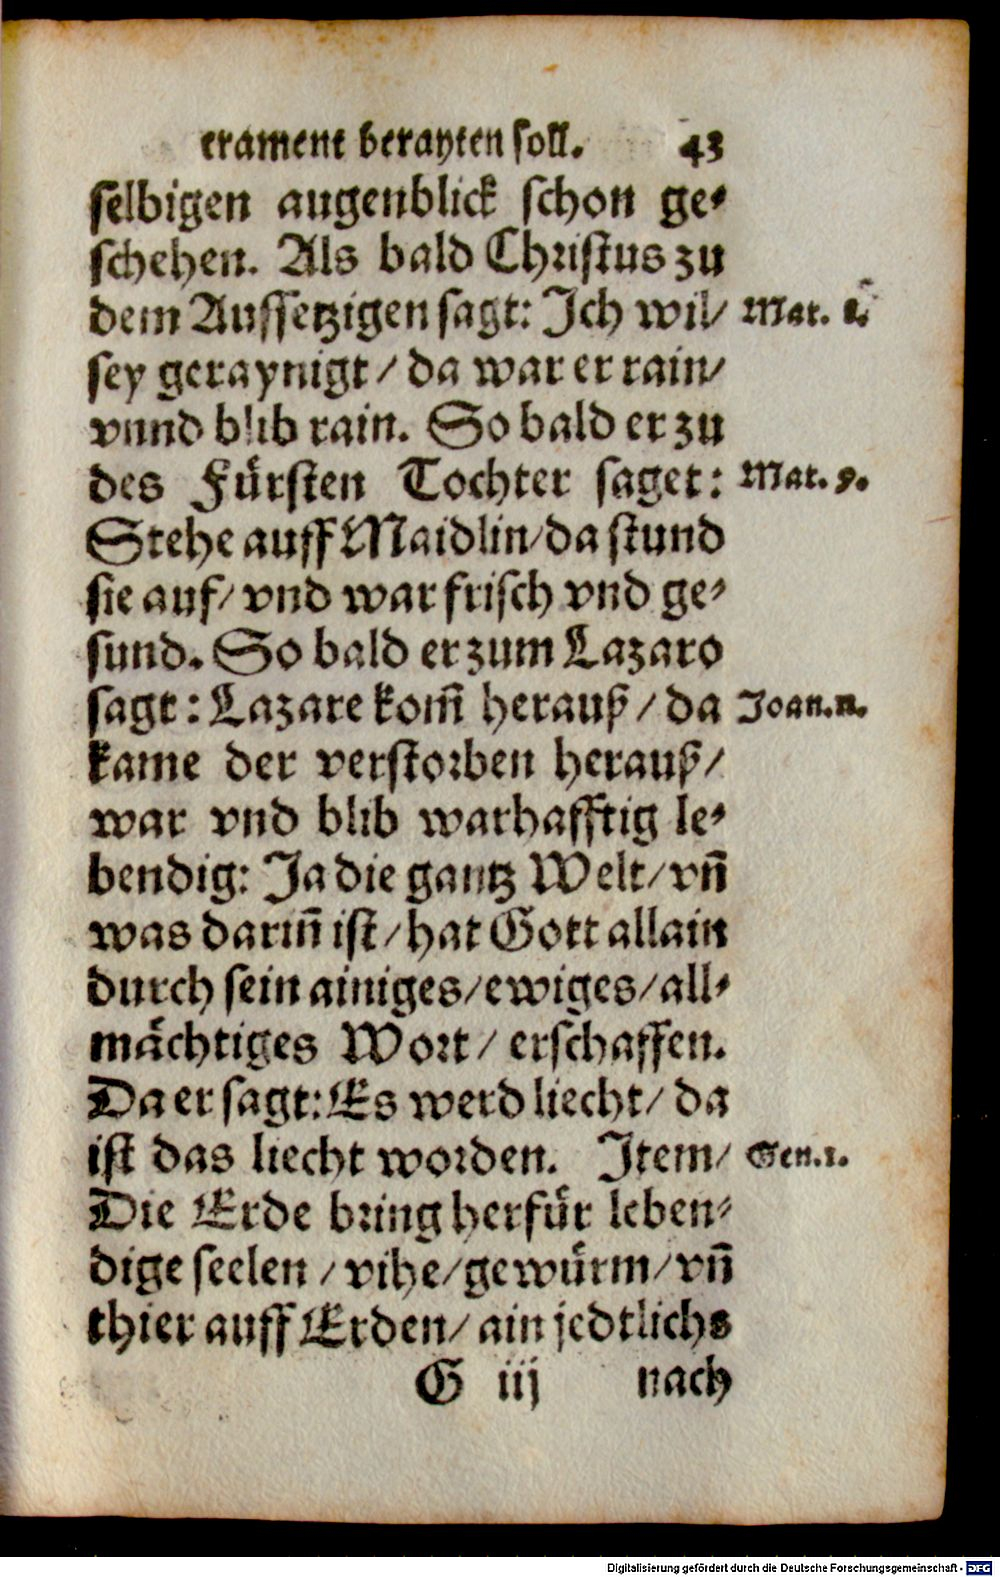 crament berayten soll. 43
selbigen augenblick schon ge⸗
schehen. Als bald Christus zu
dem Aussetzigen sagt: Ich wil/ Mat. 8.
sey geraynigt/ da war er rain/
vnnd blib rain. So bald er zu
des Fürsten Tochter saget: Mat. 9.
Stehe auff Maidlin/ da stund
sie auf/ vnd war frisch vnd ge⸗
sund. So bald er zum Lazaro
sagt: Lazare kom̄ herauß/ da Joan. 11.
kame der verstorben herauß/
war vnd blib warhafftig le⸗
bendig: Ja die gantz Welt/ vn̄
was darin̄ ist/ hat Gott allain
durch sein ainiges/ ewiges/ all⸗
mächtiges Wort/ erschaffen.
Da er sagt: Es werd liecht/ da
ist das liecht worden. Item/ Gen. 1.
Die Erde bring herfür leben⸗
dige seelen/ vihe/ gewürm/ vn̄
thier auff Erden/ ain jedtlichs
G iij nach
Digitalisierung gefördert durch die Deutsche Forschungsgemeinschaft - DFG